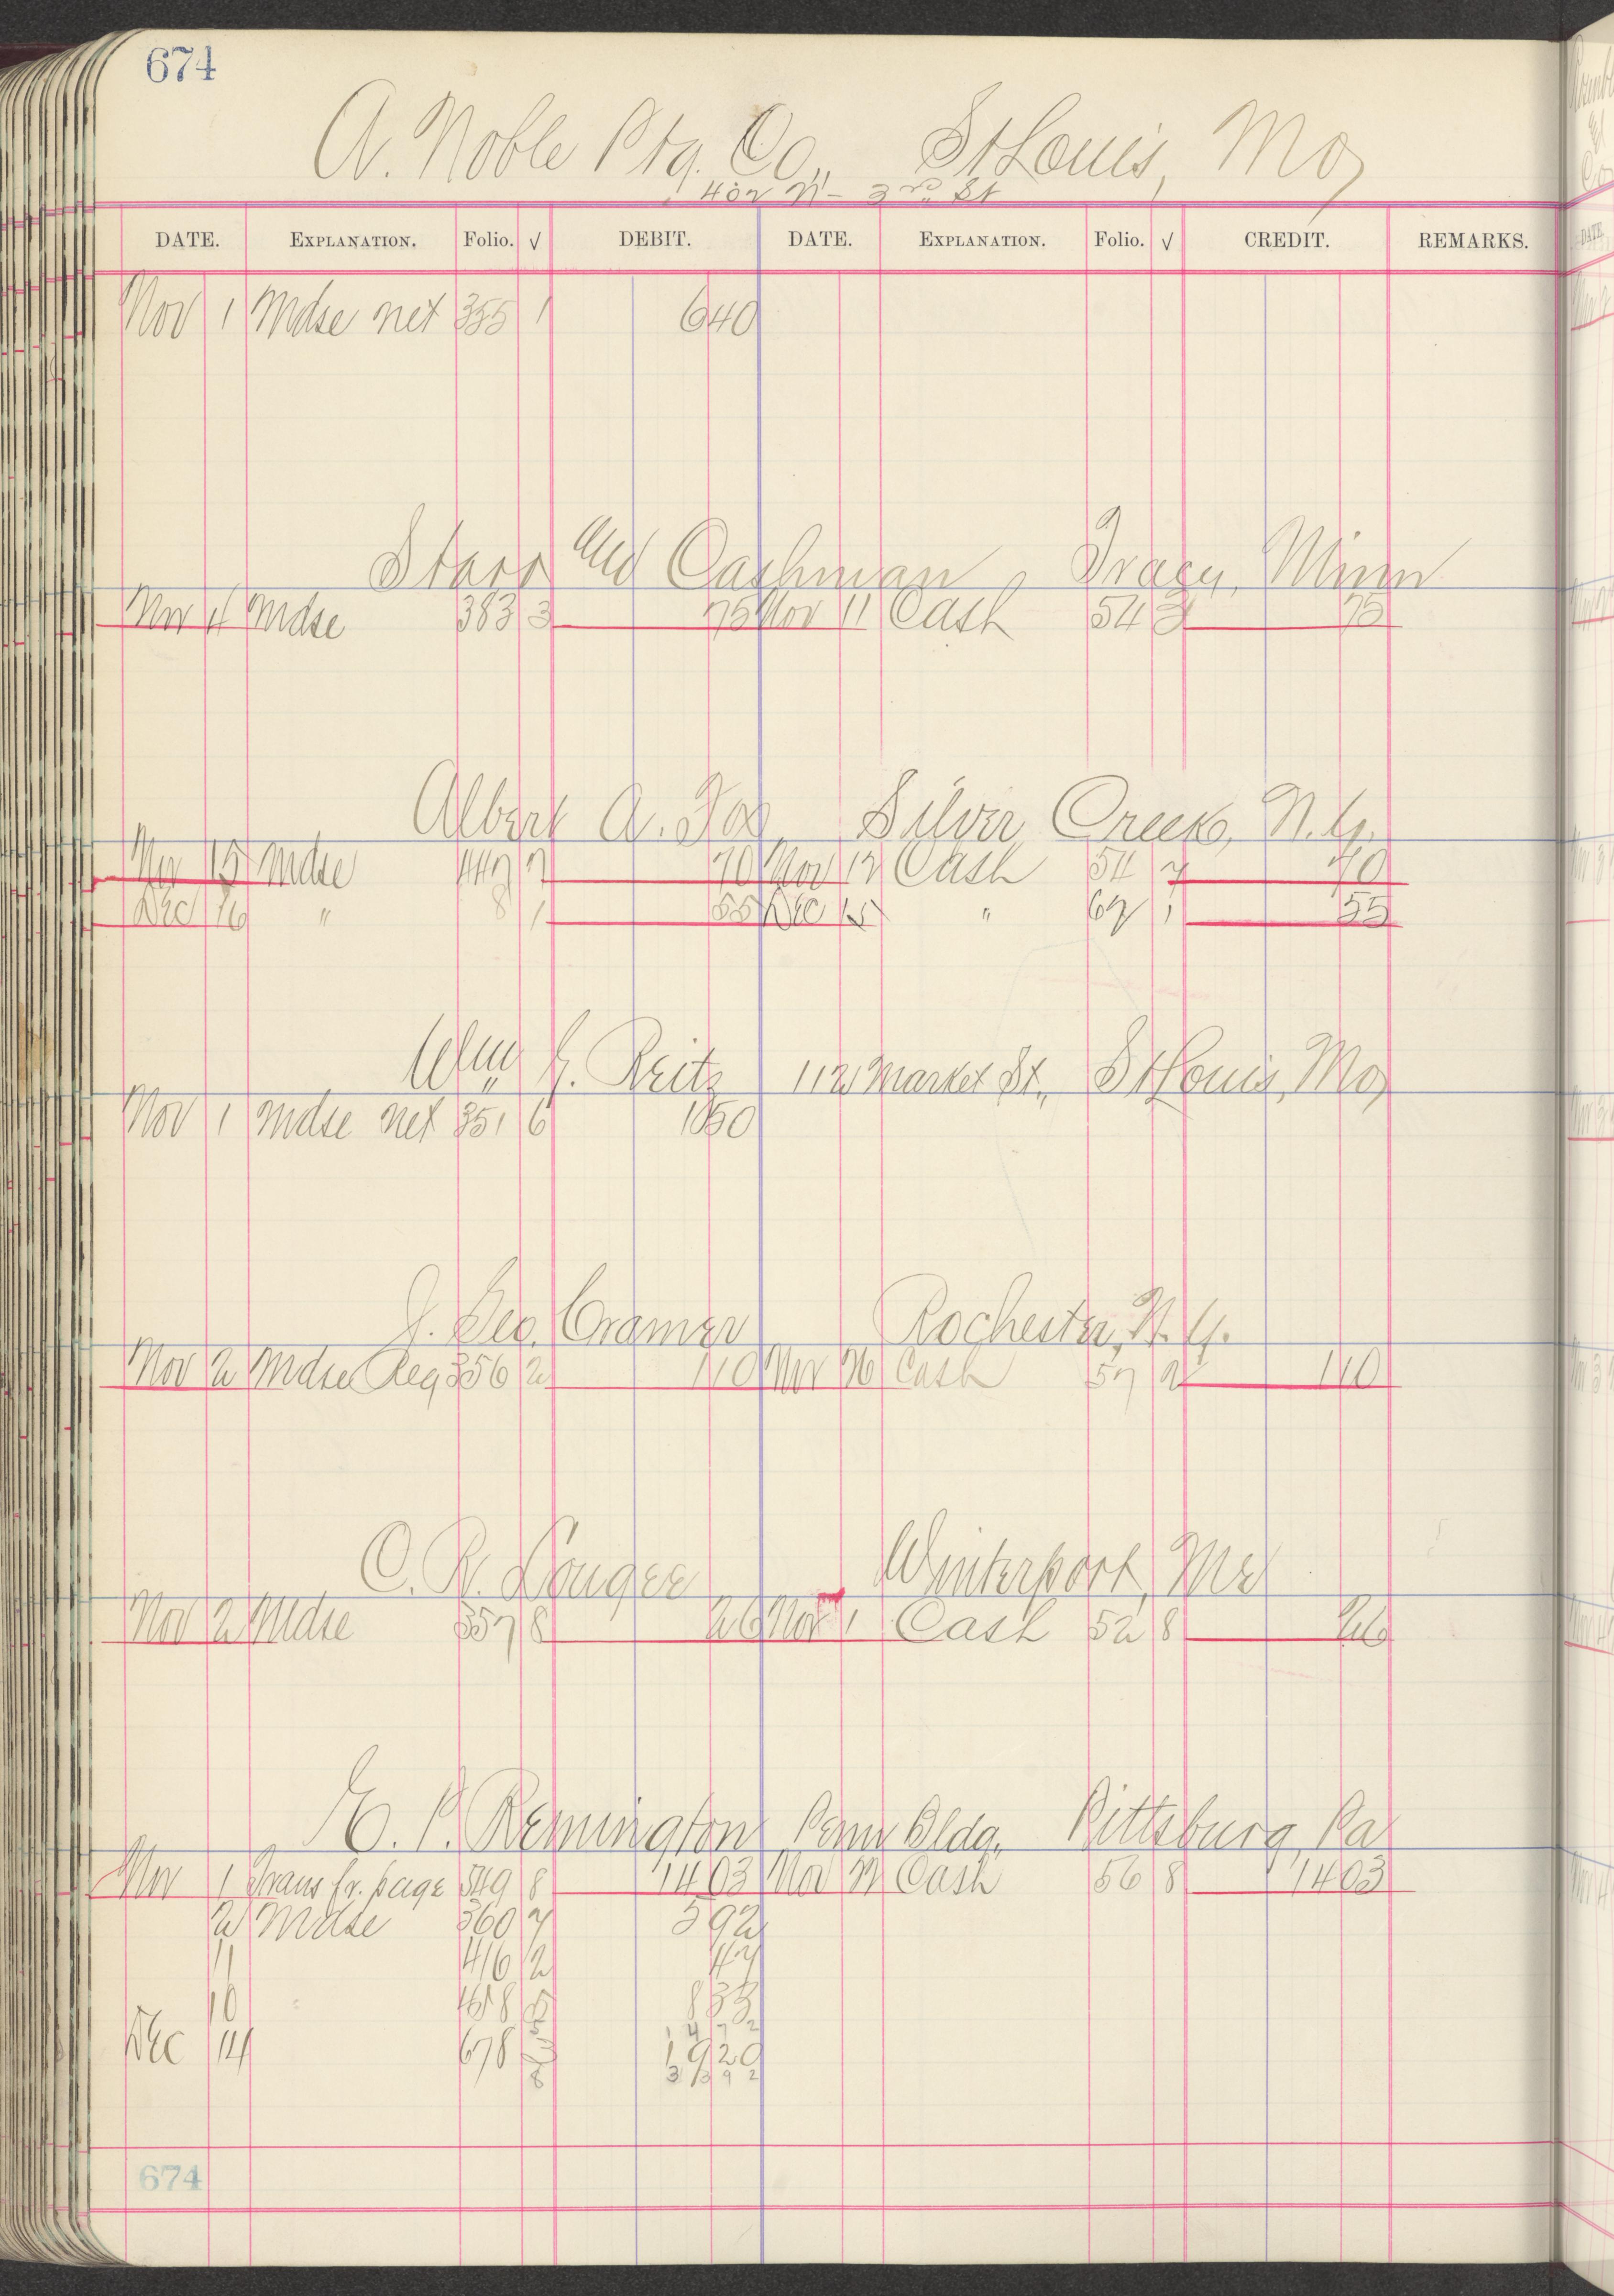 674
A. Noble Ptg. Co., St Louis, Mo,
407 N- 3rd St
DATE. EXPLANATION. Folio. √ DEBIT. DATE. EXPLANATION. Folio. √ CREDIT. REMARKS.
Nov 1 Mdse net 355 1 640
Starr and Cashman, Tracy, Minn
Nov 4 Mdse 383 3 75 Nov 11 Cash 54 3 75
Albert A. Fox, Silver Creek, N.Y.
Nov 15 Mdse 447 7 70 Nov 12 Cash 54 7 70
Dec 16 " 8 1 55 Dec 15 " 67 1 55
Wm J. Reitz 112 Market St., St Louis, Mo,
Nov 1 Mdse net 351 6 1050
J. Geo. Cramer Rochester, N.Y.
Nov 2 Mdse Reg 356 2 110 Nov 26 Cash 57 2 110
C. R. Lougee Winterport, Me
Nov 2 Mdse 357 8 26 Nov 1 Cash 52 8 26
E. P. Remington Penn Bldg. Pittsburg, Pa
Nov 1 Trans fr. page 549 8 1403 Nov 22 Cash 56 8 1403
2 Mdse 360 7 592
11 416 2 47
18 458 5 833
1472
Dec 14 678 1920
8 3392
674